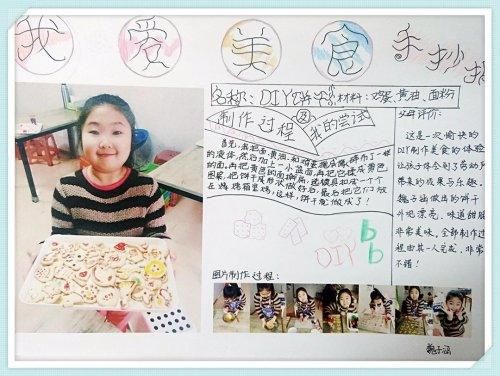 我爱美食手抄报
名称：DIY饼干
材料：鸡蛋、黄油、面粉
制作过程及我的尝试
首先，我把面、黄油、和鸡蛋
的液体，然后加上一小
的面，再把黄色的面
图案，把饼干
在烤鸡箱里烤，这样，饼干就做成了！
DIY
bb
图片制作过程：
父母评价：
这是一次愉快的
DIY制作美食的体验
让孩子体会到了劳动所
带来的成果与乐趣。
魏子涵做出的饼干
外观漂亮，味道甜脆
非常美味。全部制作过
程由其一人完成，非常
不错！
魏子涵